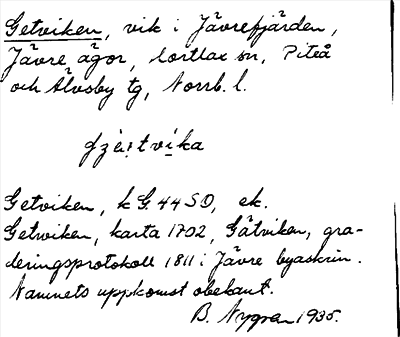 Getviken, vik i Jävrefjärden,
Jävre ägor, Hortlax sn, Piteå
och Älvsby tg, Norrb. l.
Getviken, k G. 44 SO, ek.
Getwiken, karta 1702, Gätviken, gra-
deringsprotokoll 1811 i Jävre byaskrin.
Namnets uppkomst obekant.
B. Nygren 1935.